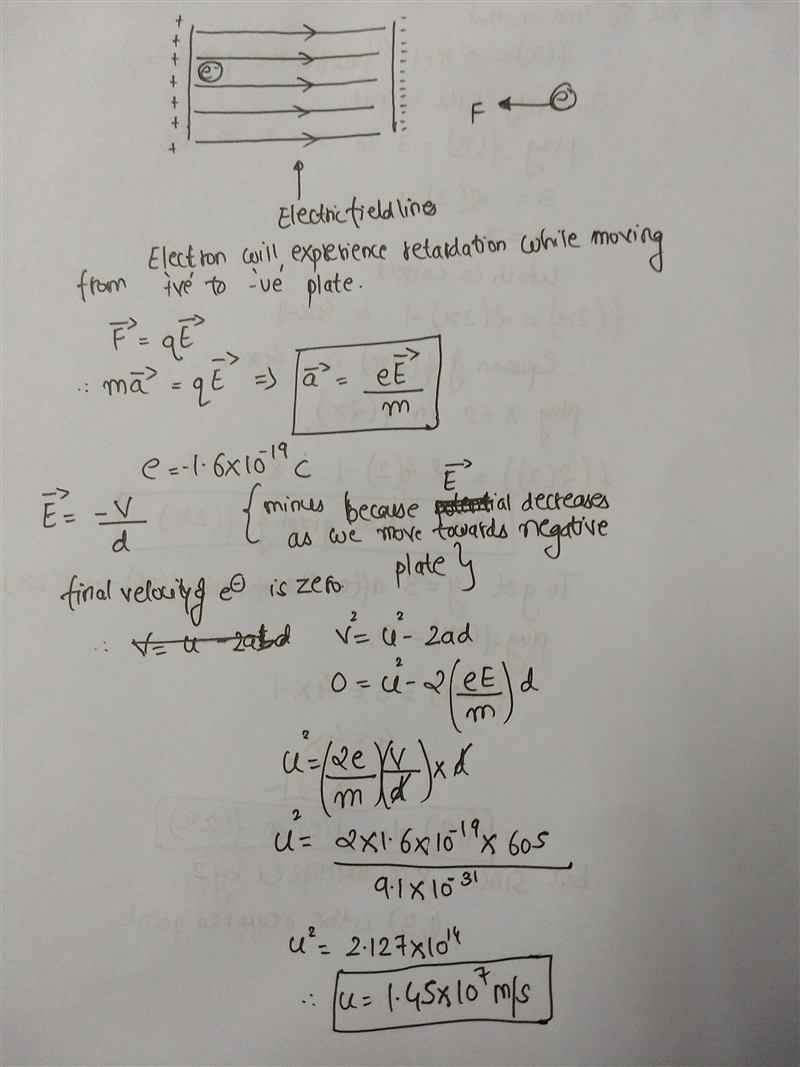 + + + + + + +
e⁻
F ← e⁻
Electric field lines
Electron will experience retardation while moving
from +ve to -ve plate.
F⃗ = qE⃗
∴ ma⃗ = qE⃗ => a⃗ = eE⃗/m
e = -1.6×10⁻¹⁹ C
E⃗ = -V/d { minus because E⃗ potential decreases
as we move towards negative
plate }
final velocity of e⊖ is zero.
∴ V² = u² - 2ad
0 = u² - 2(eE/m) d
u² = (2e/m)(V/d) × d
u² = 2×1.6×10⁻¹⁹ × 605 / 9.1×10⁻³¹
u² = 2.127×10¹⁴
∴ u = 1.45×10⁷ m/s